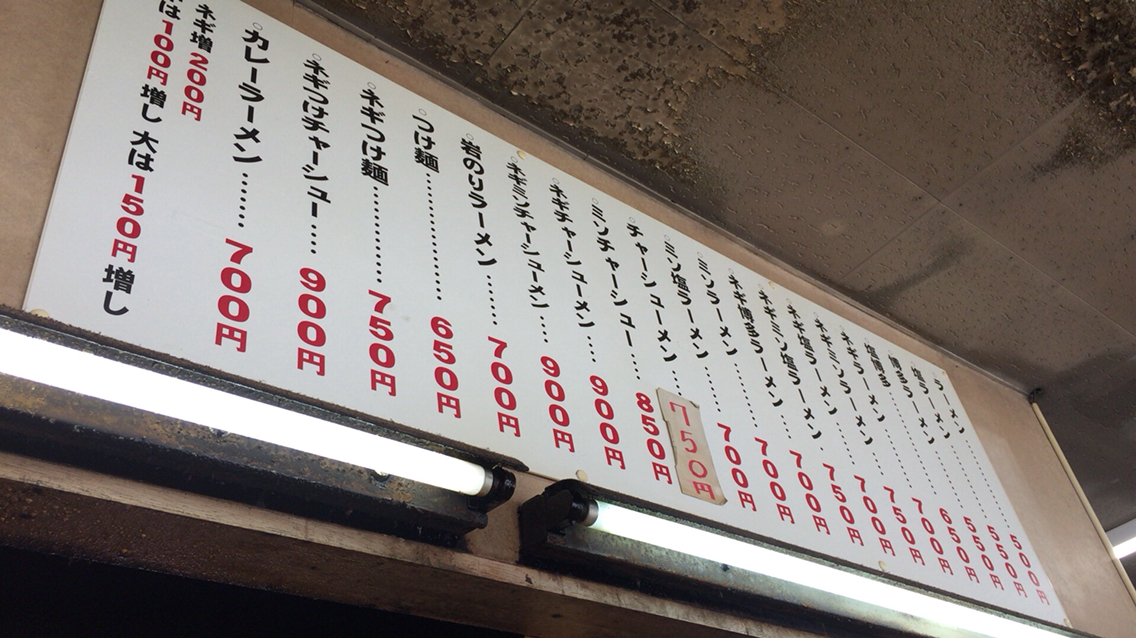 ○ラーメン……500円
○塩ラーメン……550円
○博多ラーメン……550円
○塩博多ラーメン……650円
○ネギラーメン……700円
○ネギミソラーメン……750円
○ネギ塩ラーメン……700円
○ネギミソ塩ラーメン……750円
○ネギ博多ラーメン……700円
○ミソラーメン……700円
○ミソ塩ラーメン……700円
○チャーシューメン……750円
○ミソチャーシュー……850円
○ネギチャーシューメン……900円
○ネギミソチャーシューメン…900円
○岩のりラーメン……700円
○つけ麺…………650円
○ネギつけ麺…………750円
○ネギつけチャーシュー……900円
○カレーラーメン……700円
ネギ増200円
は100円増し 大は150円増し